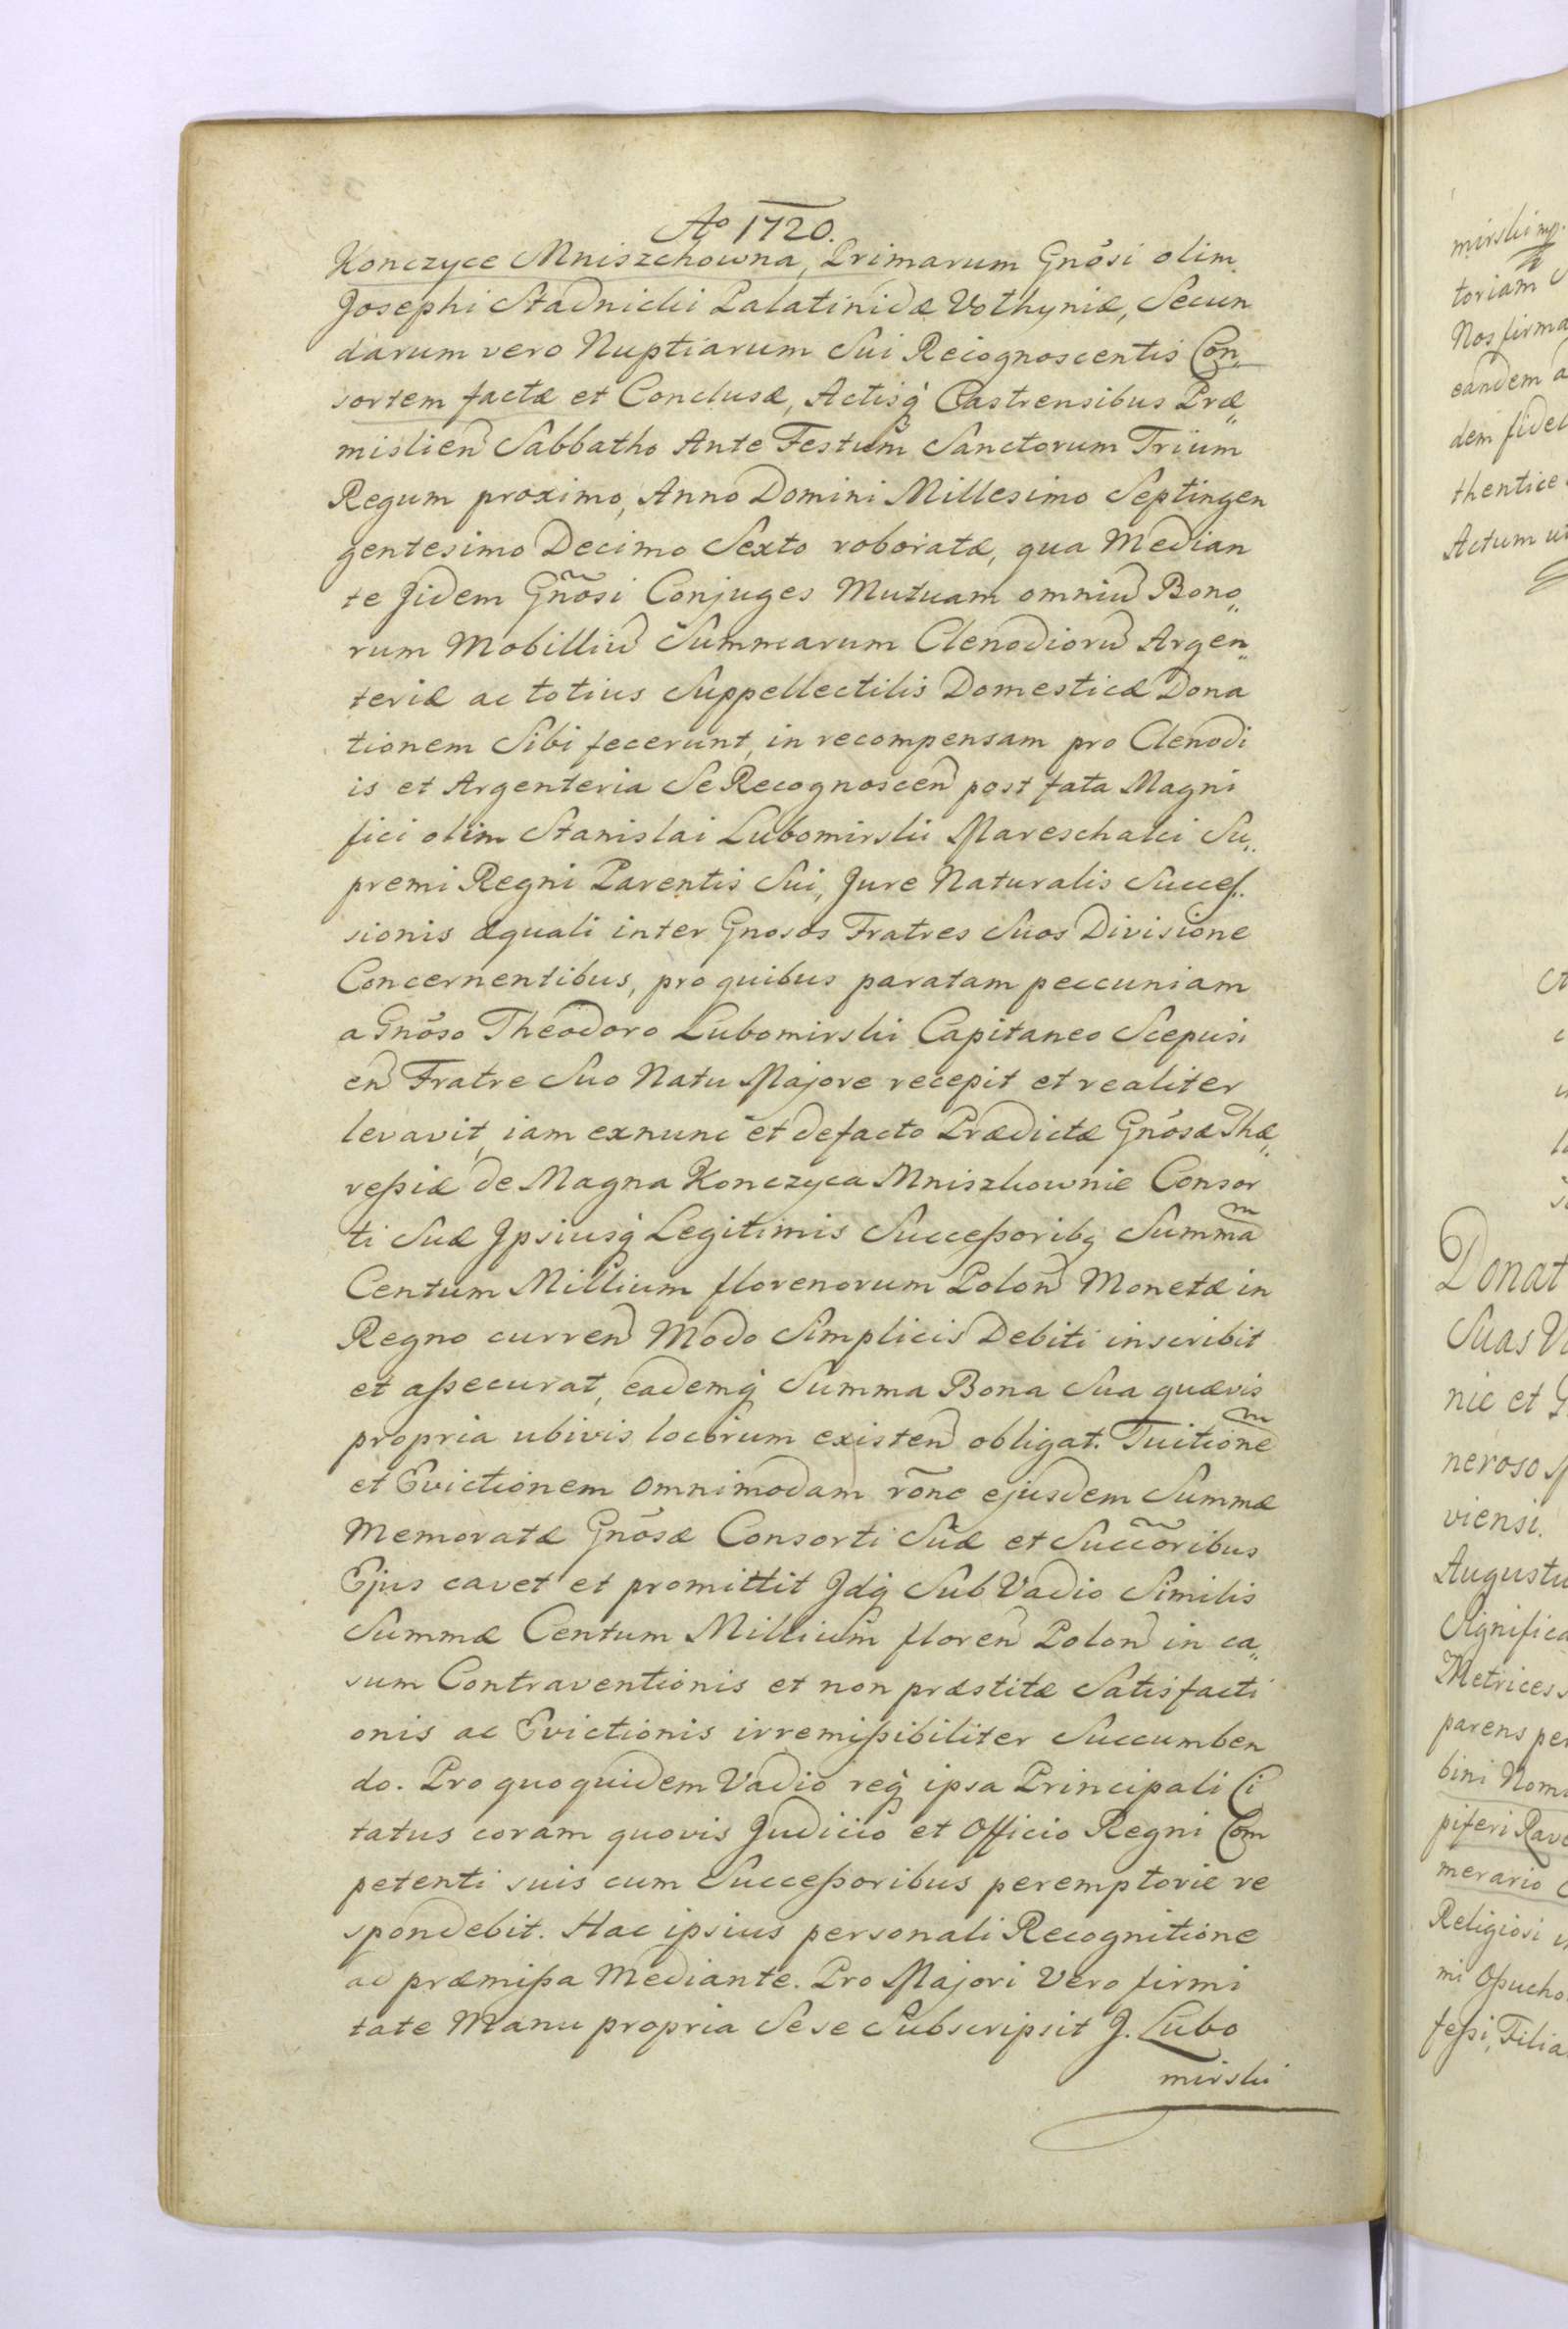 Aº 1720.
Konczyce Mniszchowna, Primarum Gnõsi olim
Josephi Stadnicki Palatinidæ Volhyniæ, Secun
darum vero Nuptiarum Sui Recognoscentis Con„
sortem factæ et Conclusæ, Actisq́ Castrensibus Præ„
mislien Sabbatho Ante Festum Sanctorum Trium
Regum proximo, Anno Domini Millesimo Septingen
gentesimo Decimo Sexto roboratæ, qua Median
te Jidem Gnõsi Conjuges Mutuam omniu Bono„
rum Mobilliu Summarum Clenodioru Argen„
teriæ ac totius Suppellectilis Domesticæ Dona
tionem Sibi fecerunt, in recompensam pro Clenodi
is et Argenteria Se Recognoscen post fata Magni
fici olim Stanislai Lubomirski Mareschalci Su„
premi Regni Parentis Sui, Jure Naturalis Succes„
sionis æquali inter Gnosos Fratres Suos Divisione
Concernentibus, pro quibus paratam peccuniam
a Gnõso Theodoro Lubomirski Capitaneo Scepusi
en Fratre Suo Natu Majore recepit et realiter
levavit, iam exnunc et defacto Prædictæ Gnõsæ Thæ„
reßiæ de Magna Konczyca Mniszkownie Consor
ti Suæ Jpsiusq́ Legitimis Succeßoribq Summa͠m
Centum Millium florenorum Polon Monetæ in
Regno curren Modo Simplicis Debiti inscribit
et aßecurat, eademq́ Summa Bona Sua quævis
propria ubivis locorum existen obligat. Tuitione͠m
et Evictionem omnimodam rõne ejusdem Summæ
Memoratæ Gnõsæ Consorti Suæ et Succõribus
Ejus cavet et promittit Jdq́ Sub Vadio Similis
Summæ Centum Millium floren Polon in ca„
sum Contraventionis et non præstitæ Satisfacti
onis ac Evictionis irremißibiliter Succumben
do. Pro quo quidem Vadio req́ ipsa Principali Ci
tatus coram quovis Judicio et Officio Regni Com
petenti suis cum Succeßoribus peremptorie re
spondebit. Hac ipsius personali Recognitione
ad præmißa Mediante. Pro Majori Vero firmi
tate Manu propria Sese Subscripsit J. Lubo
mirski
mirski mp.
toriam
Nos firma
eandem a
dem fidel
thentice
Actum ut
Donat
Suas V
nie et G
neroso
viensi.
Augustu
Significa
Metrices
parens per
bini Nomi
piferi Rave
merario C
Religiosi
mi Oßucho
feßi, Filia